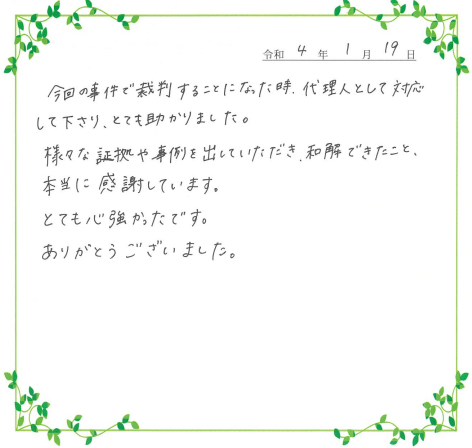 令和 4 年 1 月 19 日
今回の事件で裁判することになった時、代理人として対応
して下さり、とても助かりました。
様々な証拠や事例を出していただき、和解できたこと、
本当に感謝しています。
とても心強かったです。
ありがとうございました。